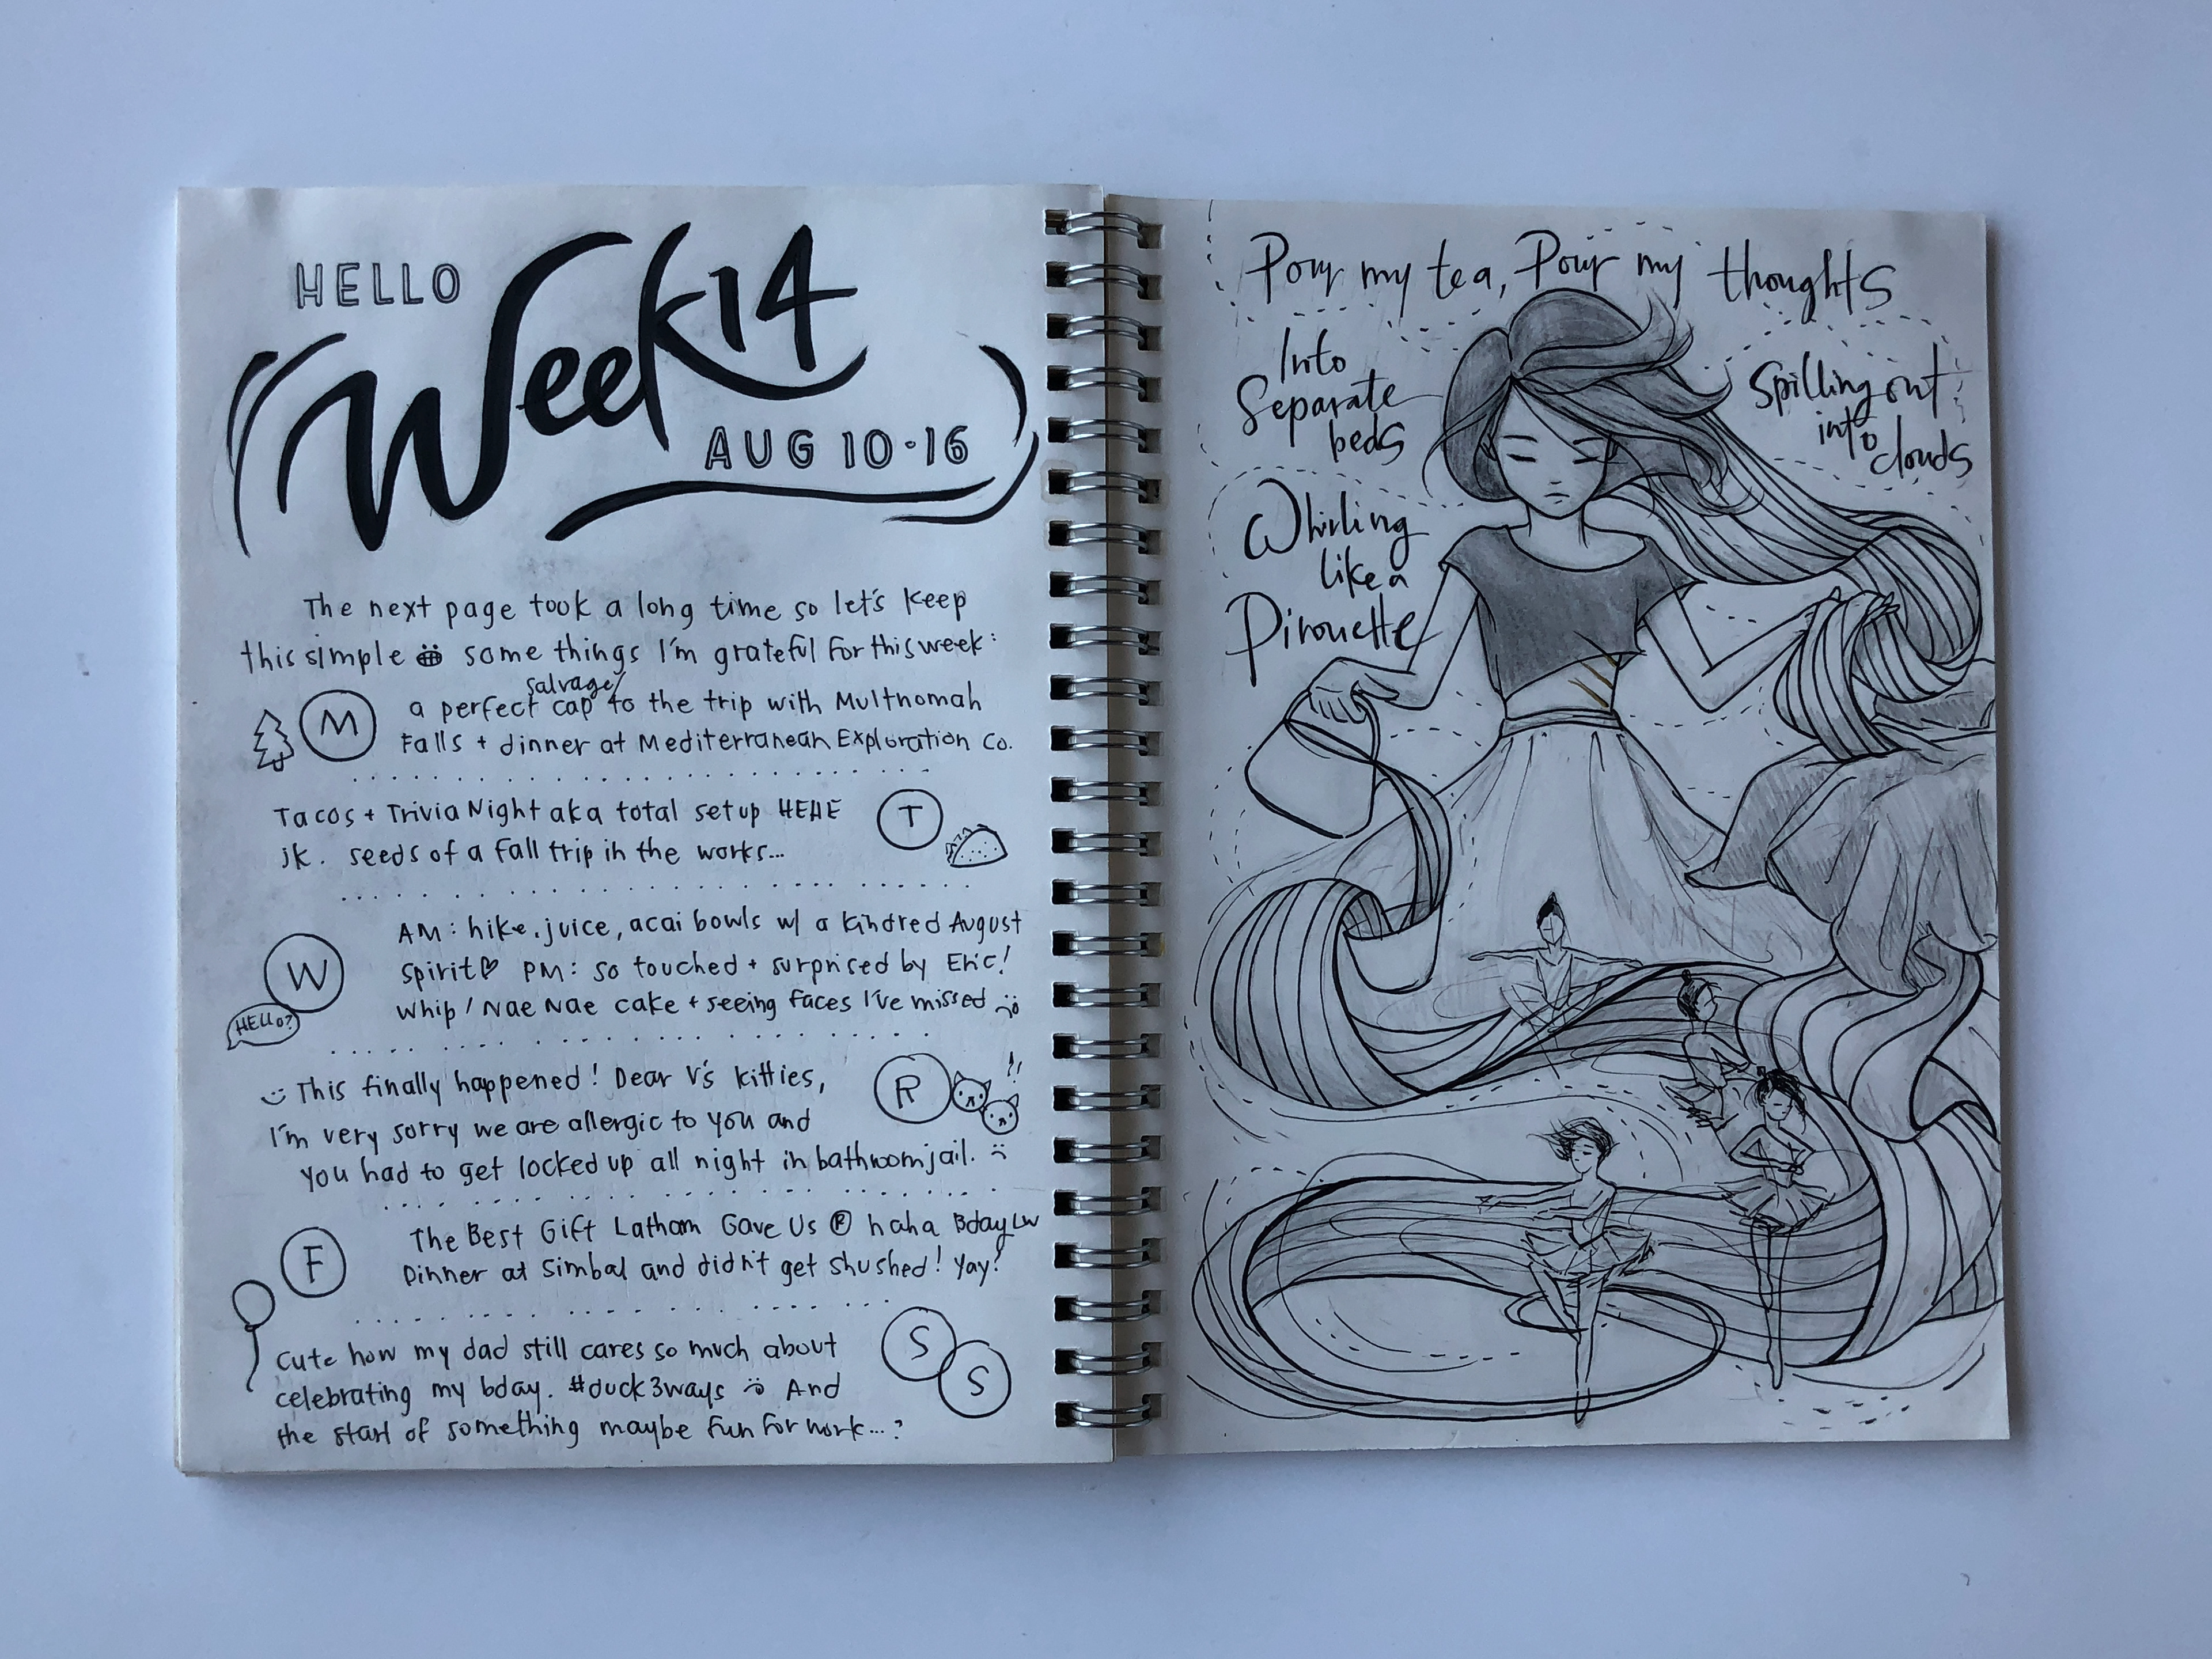 HELLO
Week 14
AUG 10·16
The next page took a long time so let's keep
this simple some things I'm grateful for this week:
M
salvage/
a perfect cap to the trip with Multnomah
Falls + dinner at Mediterranean Exploration Co.
Tacos + Trivia Night aka total setup HEHE
T
jk. seeds of a fall trip in the works...
AM: hike, juice, acai bowls w/ a kindred August
W
spirit♡ PM: so touched + surprised by Eric!
Whip/Nae Nae cake + seeing faces I've missed :)
HELLO?
:) This finally happened! Dear V's kitties,
R
!!
I'm very sorry we are allergic to you and
you had to get locked up all night in bathroom jail. :(
The Best Gift Latham Gave Us ® haha Bday LW
F
Dinner at Simbal and didn't get shushed! Yay!
Cute how my dad still cares so much about
S
S
celebrating my bday. #duck3ways :) And
the start of something maybe fun for work...?
Pour my tea, Pour my thoughts
Into
Separate
beds
Spilling out
into
clouds
Whirling
like a
Pirouette